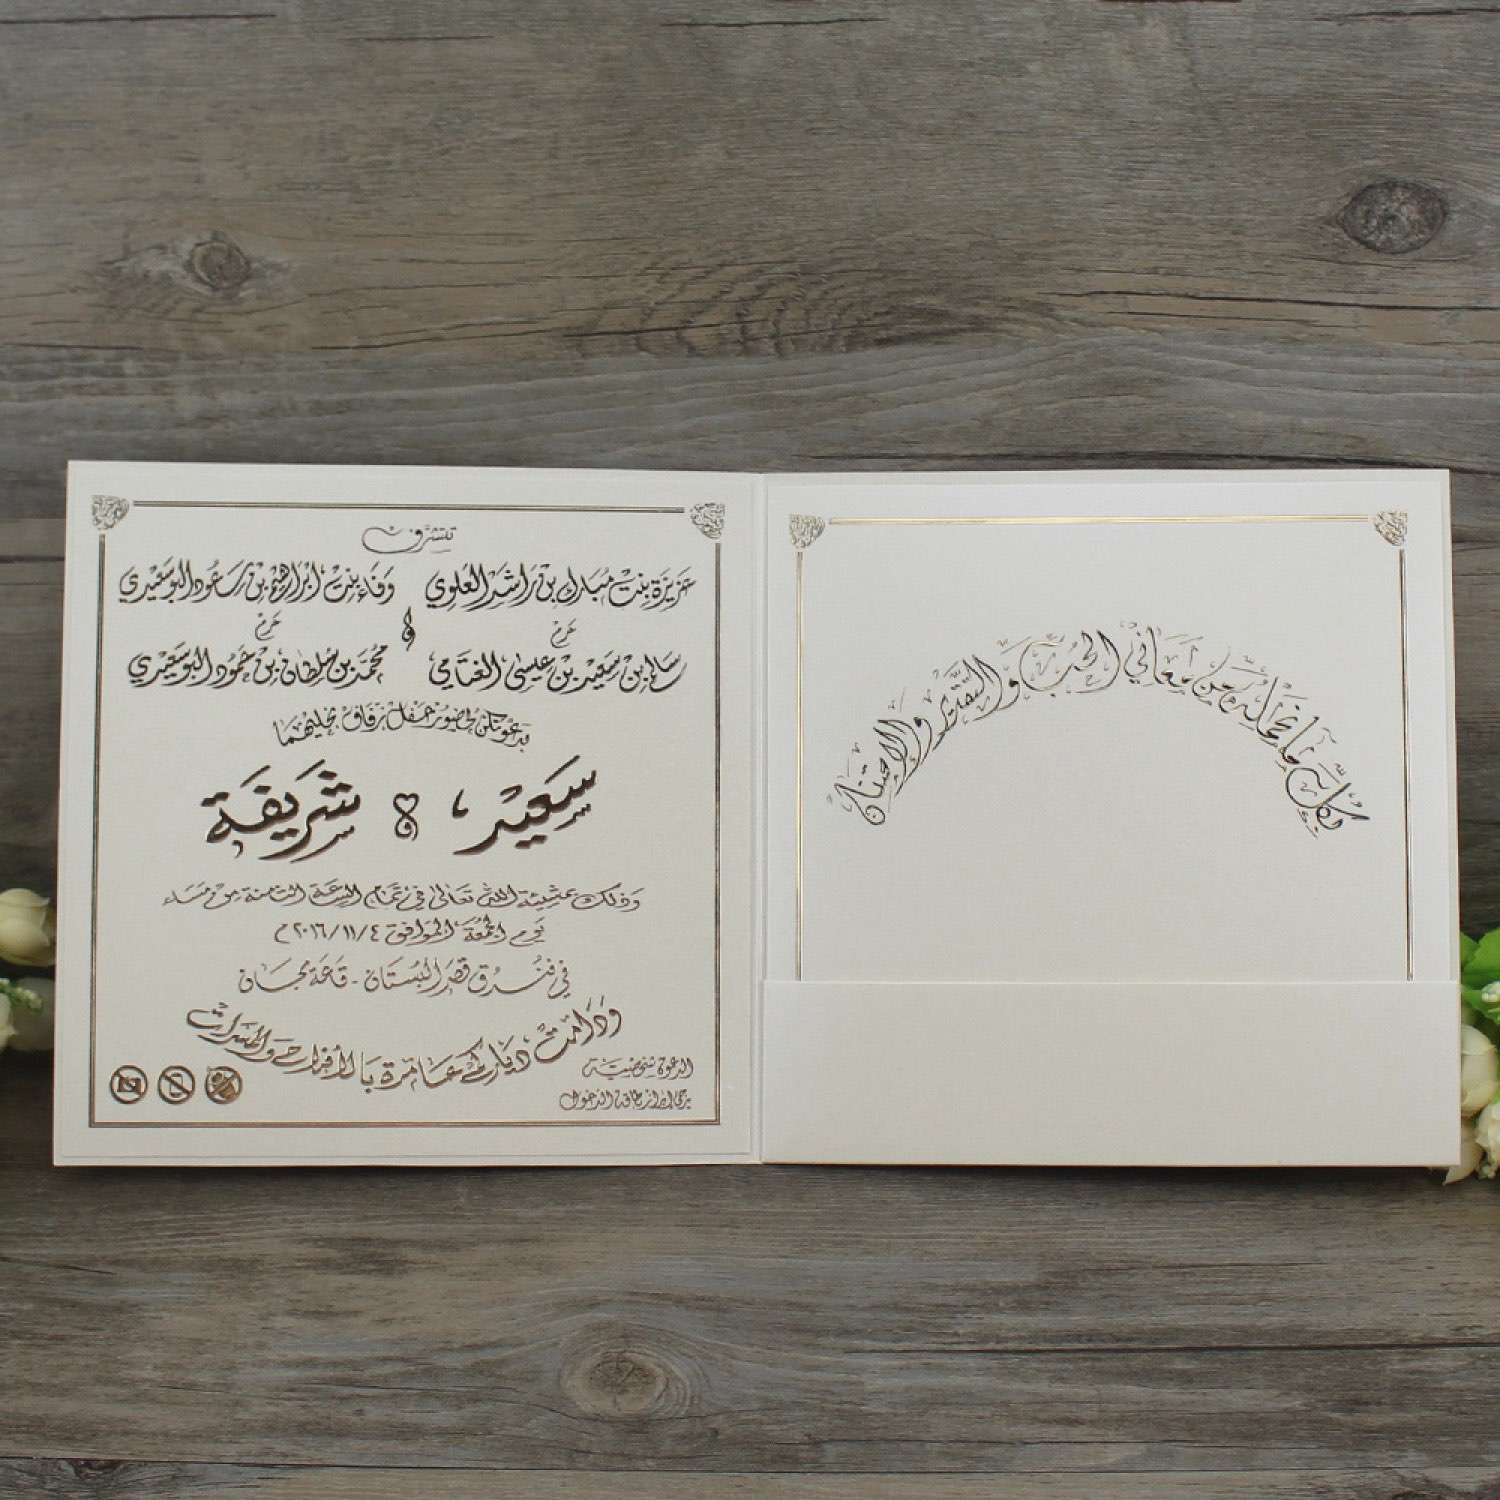 تتشرف
عزيزة بنت مبارك بن راشد العلوي
حرم
سالم بن سعيد بن عيسى الغتامي
و
وفاء بنت ابراهيم بن سعود البوسعيدي
حرم
محمد بن سلطان بن حمود البوسعيدي
بدعوتكن لحضور حفل زفاف نجليهما
سعيد & شريفة
وذلك بمشيئة الله تعالى في تمام الساعة الثامنة من مساء
يوم الجمعة الموافق ٢٠١٦/١١/٤م
في فندق قصر البستان - قاعة مجان
ودامت دياركم عامرة بالأفراح والمسرات
الدعوة شخصية
يرجى إبراز بطاقة الدخول
بكل من معاني الحب والتقدير والإمتنان